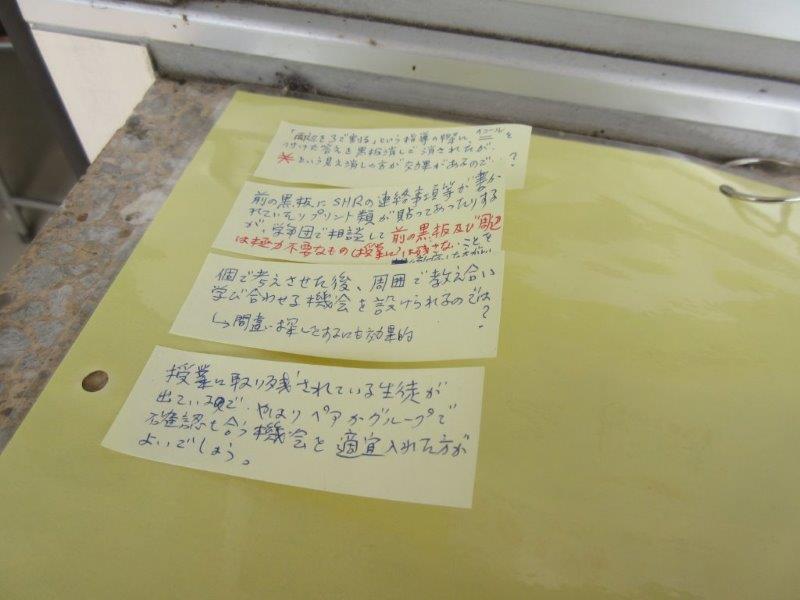 「両辺を3で割る」という指導の際に、イコールを
付けた答えを黒板消しで消されたが、
※という見え消しの方が効果があるので…?
前の黒板にSHRの連絡事項等が書か
れていたりプリント類が貼ってあったりする
が、学年団で相談して前の黒板及び周辺
は極力不要なもの(授業に)は残さないことを
個で考えさせた後、周囲で教え合い
学び合わせる機会を設けられるのでは?
↳間違い探しとするにも効果的
授業に取り残されている生徒が
出ているので やはりペアかグループで
確認し合う機会を適宜入れた方が
よいでしょう。